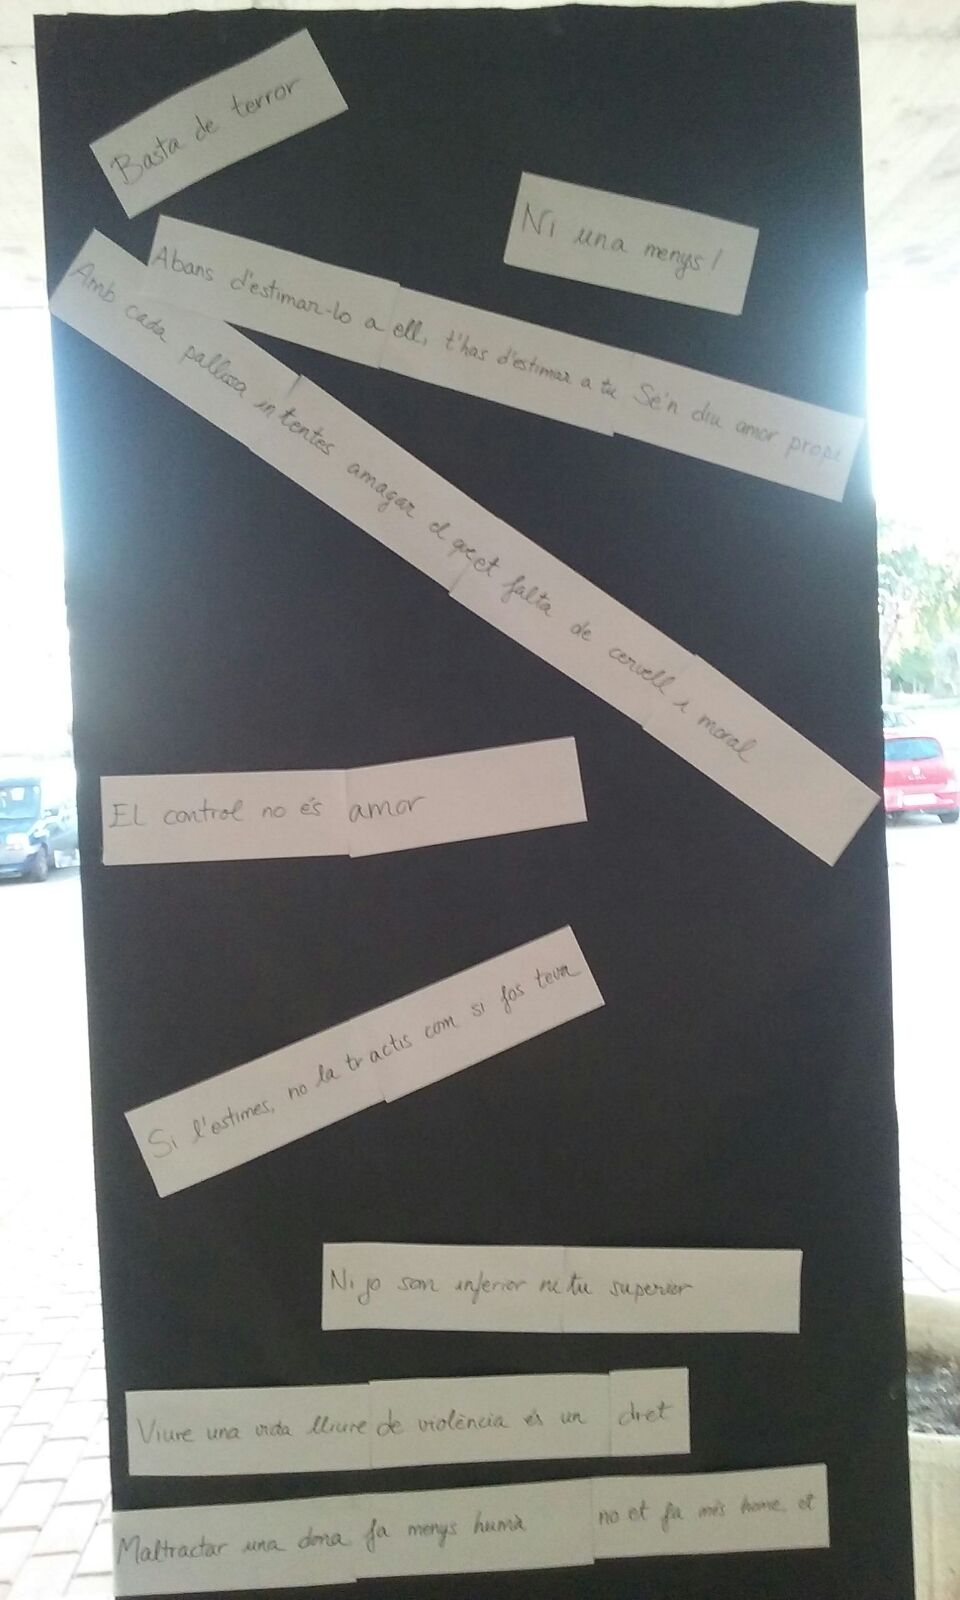 Basta de terror
Ni una menys!
Abans d'estimar-lo a ell, t'has d'estimar a tu Se'n diu amor propi
Amb cada pallissa intentes amagar el que et falta de cervell i moral
El control no és amor
Si l'estimes, no la tractis com si fos teva
Ni jo som inferior ni tu superior
Viure una vida lliure de violència és un dret
Maltractar una dona fa menys humà no et fa més home, et